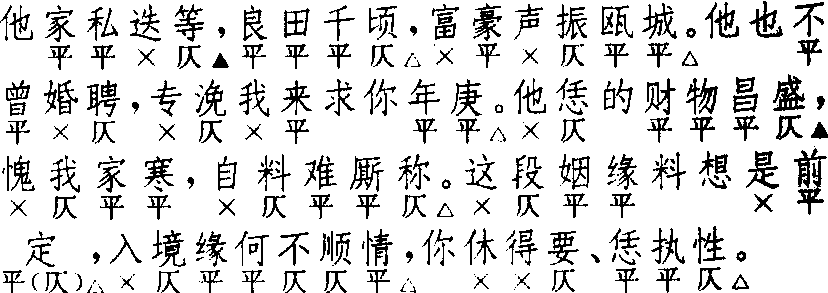 他家私迭等,良田千顷,富豪声振瓯城。他也不
平平×仄▲平平平仄△×平×仄平平△平
曾婚聘,专浼我来求你年庚。他恁的财物昌盛,
平×仄×仄×平平平△×仄平平平仄▲
愧我家寒,自料难厮称。这段姻缘料想是前
×仄平平×仄平平仄△×仄平平×平
定,入境缘何不顺情,你休得要、恁执性。
平(仄)△×仄平平仄仄平△××仄平平仄△